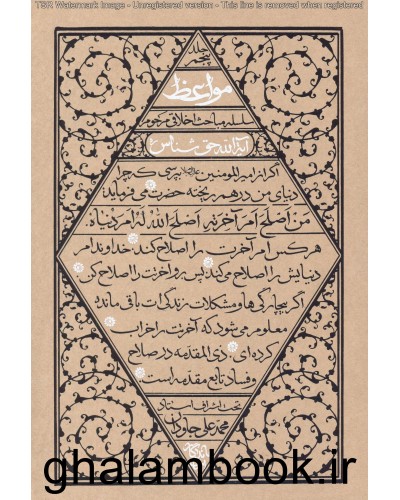 TSR Watermark Image - Unregistered version - This line is removed when registered
جلد
پنجم
مواعظ
سلسله مباحث اخلاقی مرحوم
آیة‌الله حق‌شناس
اگر از امیرالمومنین علیه‌السلام بپرسی که چرا
دنیای من در هم ریخته حضرت می‌فرماید:
مَن اَصلَحَ اَمرَ آخِرَتِهِ اَصلَحَ اللّٰهُ لَهُ اَمرَ دُنیاه.
هر کس امر آخرت را اصلاح کند، خداوند امر
دنیایش را اصلاح می‌کند، پس رو آخرتت را اصلاح کن.
اگر بیچارگی‌ها و مشکلات زندگی‌ات باقی مانده
معلوم می‌شود که آخرتت را خراب
کرده‌ای، ذی المقدمه در صلاح
و فساد تابع مقدمه است.
تحت اشراف استاد
محمدعلی جاودان
ghalambook.ir